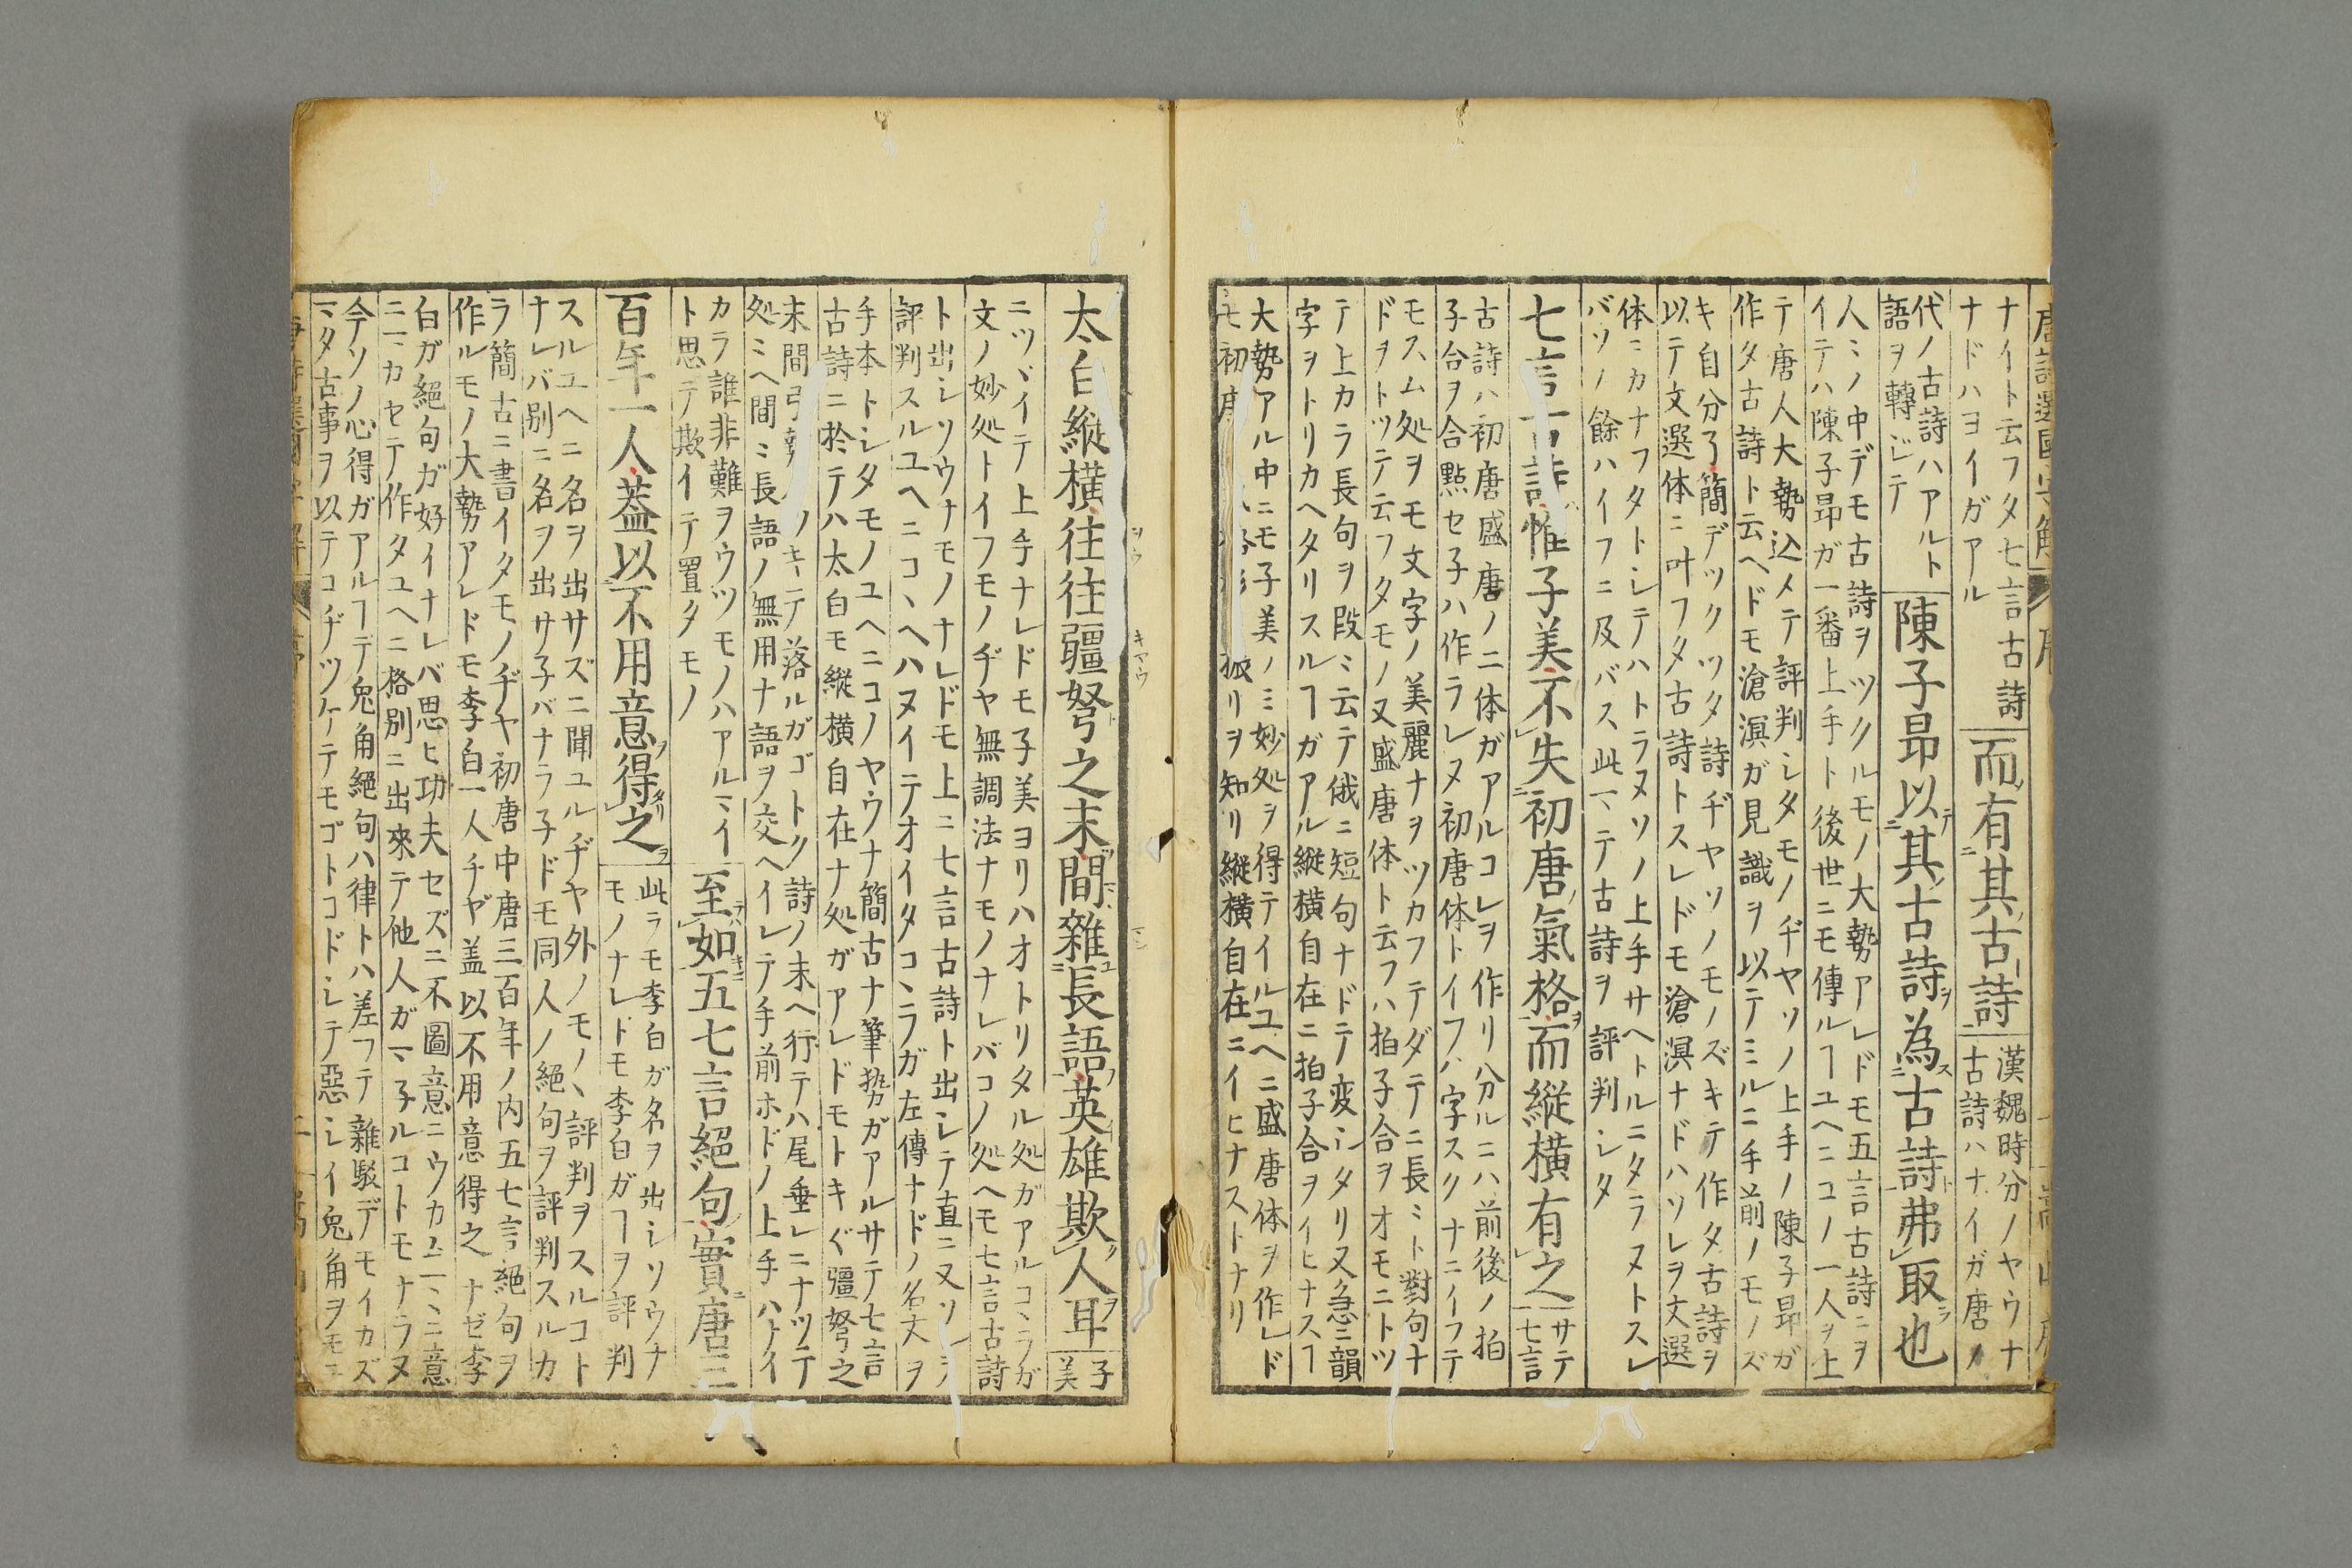 ナイト云フタ七言古詩
而有其古詩
漢魏時分ノヤウナ
古詩ハナイガ唐ノ
ナドハヨイガアル
代ノ古詩ハアルト
語ヲ轉ジテ
陳子昻以其古詩為古詩弗取也
人〻ノ中デモ古詩ヲツクルモノ大勢アレドモ五言古詩ニヲ
イテハ陳子昻ガ一番上手ト後世ニモ傳ルヿユヘニコノ一人ヲ上
テ唐人大勢込メテ評判シタモノヂヤソノ上手ノ陳子昻ガ
作タ古詩ト云ヘドモ滄溟ガ見識ヲ以テミルニ手前ノモノズ
キ自分了簡デツクツタ詩ヂヤソノモノズキテ作タ古詩ヲ
以テ文選体ニ叶フタ古詩トスレドモ滄溟ナドハソレヲ文選
体ニカナフタトシテハトラヌソノ上手サヘトルニタラヌトスレ
バソノ餘ハイフニ及バス此マテ古詩ヲ評判シタ
七言古詩惟子美不失初唐氣格而縦横有之
サテ
七言
古詩ハ初唐盛唐ノ二体ガアルコレヲ作リ分ルニハ前後ノ拍
子合ヲ合點セ子ハ作ラレヌ初唐体トイフハ字スクナニイフテ
モスム処ヲモ文字ノ美麗ナヲツカフテダテニ長〻ト對句ナ
ドヲトツテ云フタモノ又盛唐体ト云フハ拍子合ヲオモニトツ
テ上カラ長句ヲ段〻云テ俄ニ短句ナドテ変シタリ又急ニ韻
字ヲトリカヘタリスルヿガアル縦横自在ニ拍子合ヲイヒナスヿ
大勢アル中ニモ子美ノミ妙処ヲ得テイルユヘニ盛唐体ヲ作レド
モ初唐
振リヲ知リ縦横自在ニイヒナストナリ
太白縦横往往彊弩之末間雜長語英雄欺人耳
子
美
ニツヾイテ上手ナレドモ子美ヨリハオトリタル処ガアルコヽラガ
文ノ妙処トイフモノヂヤ無調法ナモノナレバコノ処ヘモ七言古詩
ト出シソウナモノナレドモ上ニ七言古詩ト出シテ直ニ又ソレヲ
評判スルユヘニコヽヘハヌイテオイタコヽラガ左傳ナドノ名文ヲ
手本トシタモノユヘニコノヤウナ簡古ナ筆勢ガアルサテ七言
古詩ニ於テハ太白モ縦横自在ナ処ガアレドモトキ〲彊弩之
末間弓勢ノキヽテ落ルガゴトク詩ノ末ヘ行テハ尾垂レニナツテ
処〻ヘ間〻長語ノ無用ナ語ヲ交ヘイレテ手前ホドノ上手ハナイ
カラ誰非難ヲウツモノハアルマイ
ト思テ欺イテ置タモノ
至如五七言絕句實唐三
百年一人蓋以不用意得之
此ラモ李白ガ名ヲ出シソウナ
モノナレトモ李白ガヿヲ評判
スルユヘニ名ヲ出サズニ聞ユルヂヤ外ノモノヽ評判ヲスルコト
ナレバ別ニ名ヲ出サ子バナラ子ドモ同人ノ絕句ヲ評判スルカ
ラ簡古ニ書イタモノヂヤ初唐中唐三百年ノ内五七言絕句ヲ
作ルモノ大勢アレドモ李白一人チヤ蓋以不用意得之ナゼ李
白ガ絕句ガ好イナレバ思ヒ功夫セズニ不圖意ニウカムマヽニ意
ニマカセテ作タユヘニ格別ニ出來テ他人ガマ子ルコトモナラヌ
今ソノ心得ガアルヿデ兔角絕句ハ律トハ差フテ雜駁デモイカズ
マタ古事ヲ以テコヂツケテモゴトコドシテ惡シイ兔角ヲモニ